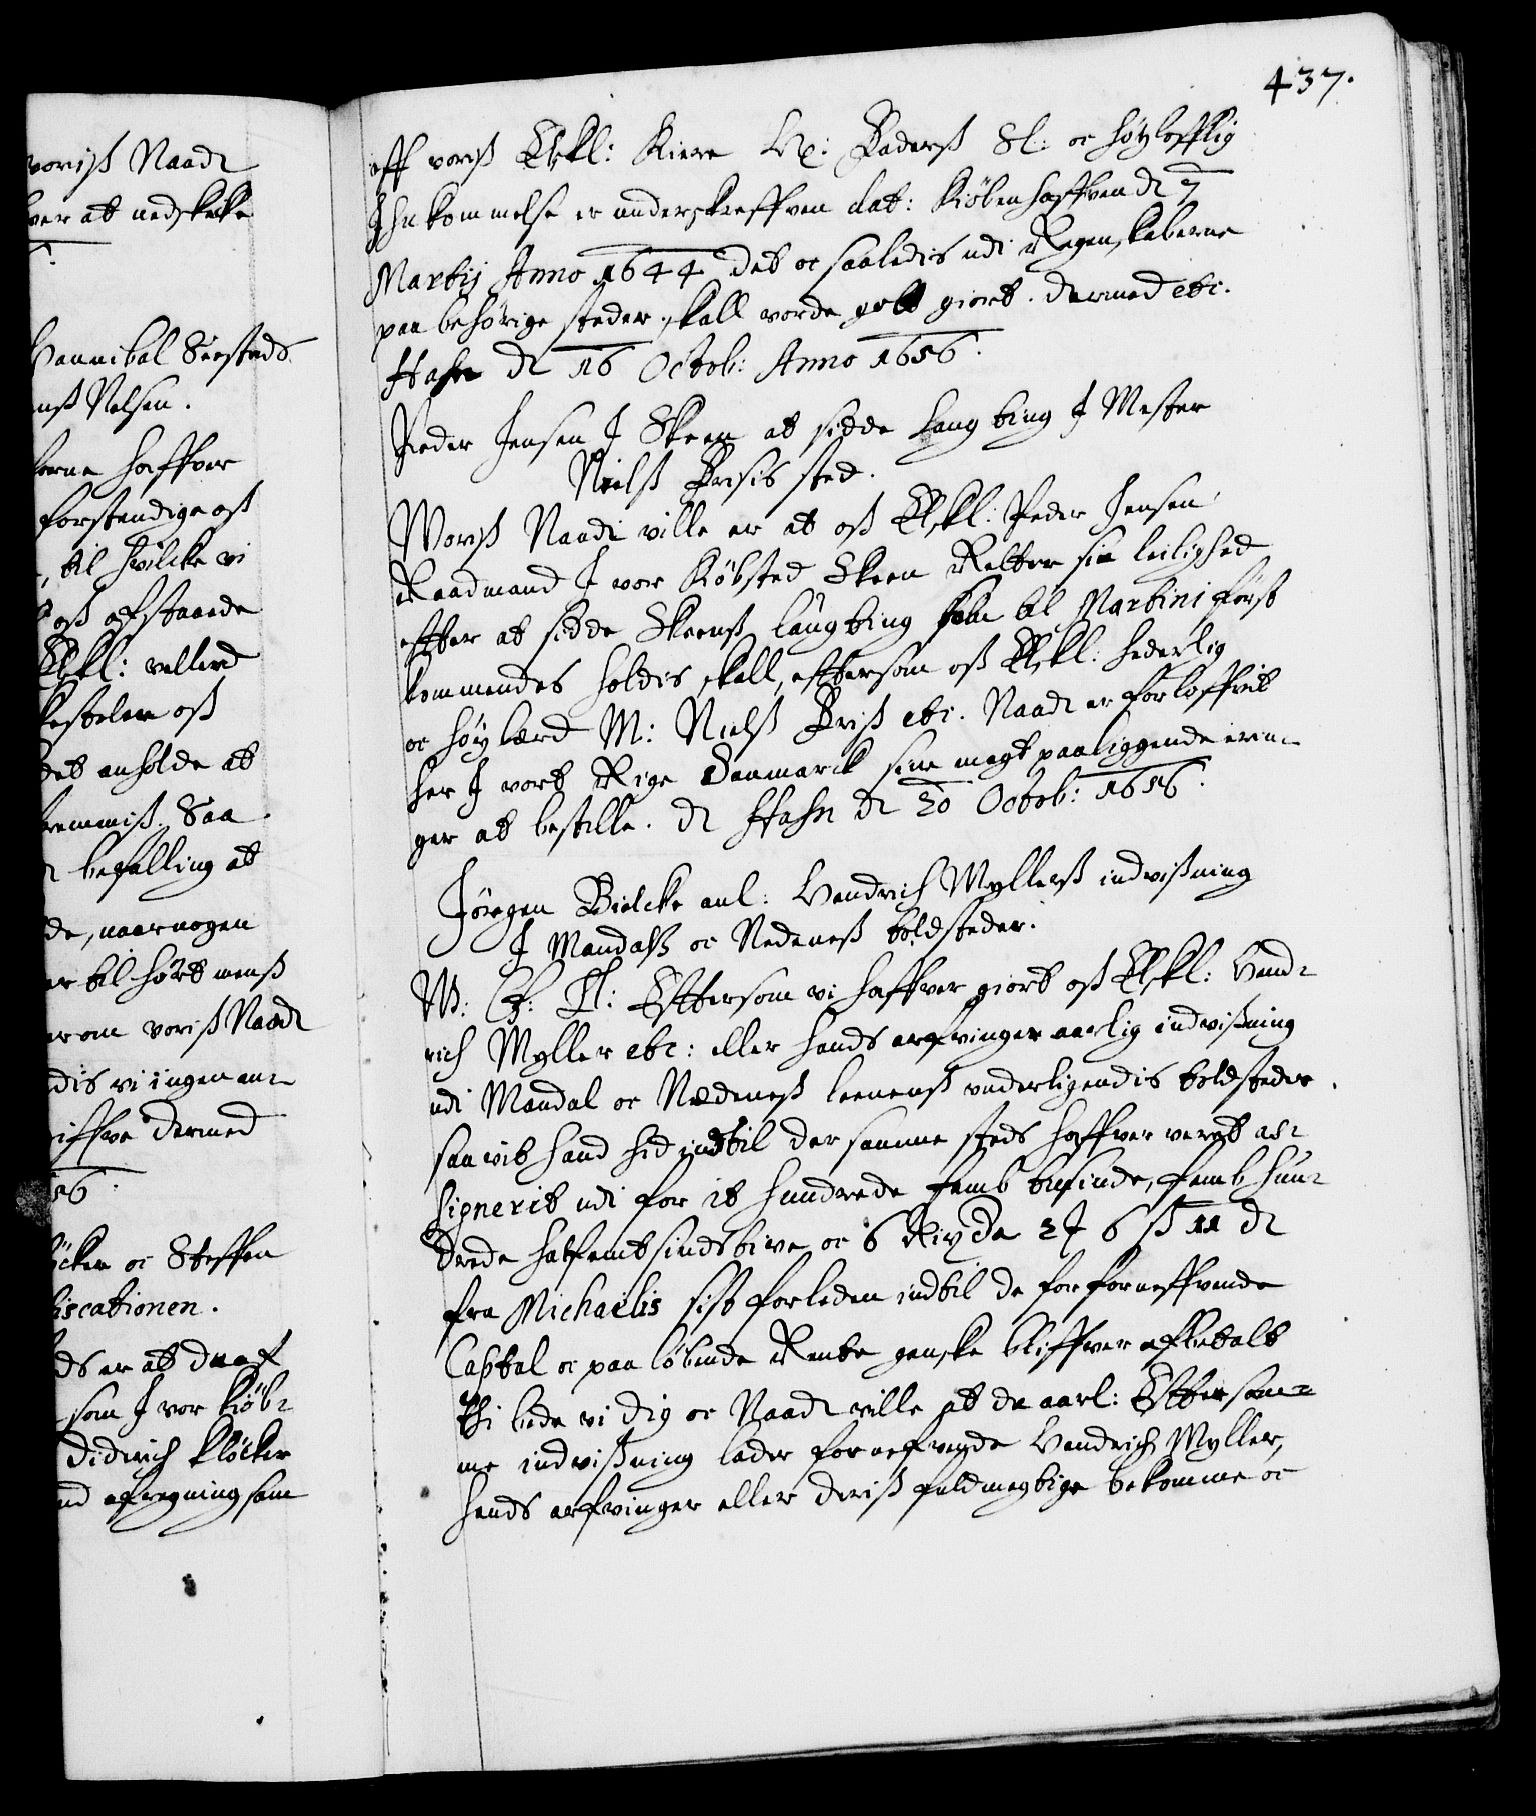 437.
voriß Naade
ver at nedskicke
Hannibal Seesteds
enß Nelsen.
derne haffver
forstendige oß
, til hvilcke vi
oß afstaaede
Elskl: vellerd
bestelen oß
det anholde at
kremmiß. Saa
befalling at
de, naar nogen
er til hört menß
erom voriß Naade
dis vi ingen an-
riffve dermed
56.
öcker oc Steffen
fiscationen.
ds er at du af
som J vor kiöb-
Didrich klöcker
nd afregning som
aff voriß Elskl: Kiere Hr: Faderß Sl: oc höylofflig
Jhukommelse er underskreffven dat: Kiöbenhaffven d 7
Martij Anno 1644 det oc saaledis udi Regenskaberne
paa behörige steder skall vorde gott giort. dermed etc.
Hafn d 16 Octob: Anno 1656.
Peder Jensen J Skeen at sidde laug ting J Mester
Nielß Brises sted.
Vorß Naade ville er at oß Elskl: Peder Jensen
Raadmand J vor Kiöbsted Skeen Retter sin leilighed
effter at sidde Skeenß laugting som til Martini först
kommendes holdis skall, eftersom oß Elskl: hederlig
oc höylærd M: Nielß Briß etc. Naade er forloffvit
her J vort Rige Danmarck sine magt paaliggende erin-
ger at bestille. d Hafn d 20 Octob: 1656.
Jörgen Bielcke anl: Hendrich Myllerß indvißning
J Mandalß oc Nedeneß toldsteder.
W: G: T: Eftersom vi haffver giort oß Elskl: Hend-
rich Myller etc: eller hands arfvinger aarlig indvißning
udi Mandal oc Nedeneß leenenß underligendis toldsteder
saavit hand hid indtil der samme steds haffver verit as-
signerit udi for it hundrede femb tusinde, femb hun-
drede halfembsindstive oc 6 Rixdr 2 ƒ 6 ß 11 d
fra Michaelis sist forleden indtil de for forneffvende
Capital oc paa löbende Rente ganske bliffver afbetalt
thi bede vi dig oc Naade ville at du aarl: Efter sam-
me indvißning lader fornefvnde Hendrich Myller,
hands arfvinger eller deriß fuldmegtige bekomme oc